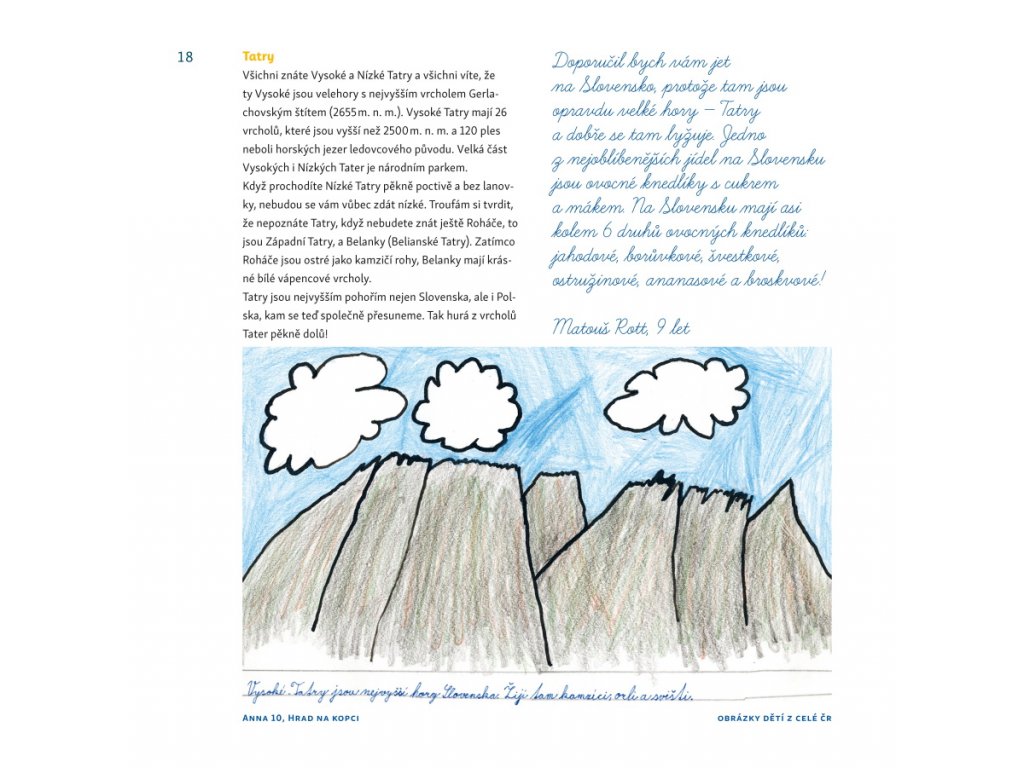 18
Tatry
Všichni znáte Vysoké a Nízké Tatry a všichni víte, že
ty Vysoké jsou velehory s nejvyšším vrcholem Gerla-
chovským štítem (2655 m. n. m.). Vysoké Tatry mají 26
vrcholů, které jsou vyšší než 2500 m. n. m. a 120 ples
neboli horských jezer ledovcového původu. Velká část
Vysokých i Nízkých Tater je národním parkem.
Když prochodíte Nízké Tatry pěkně poctivě a bez lanov-
ky, nebudou se vám vůbec zdát nízké. Troufám si tvrdit,
že nepoznáte Tatry, když nebudete znát ještě Roháče, to
jsou Západní Tatry, a Belanky (Belianské Tatry). Zatímco
Roháče jsou ostré jako kamzičí rohy, Belanky mají krás-
né bílé vápencové vrcholy.
Tatry jsou nejvyšším pohořím nejen Slovenska, ale i Pol-
ska, kam se teď společně přesuneme. Tak hurá z vrcholů
Tater pěkně dolů!
Doporučil bych vám jet
na Slovensko, protože tam jsou
opravdu velké hory – Tatry
a dobře se tam lyžuje. Jedno
z nejoblíbenějších jídel na Slovensku
jsou ovocné knedlíky s cukrem
a mákem. Na Slovensku mají asi
kolem 6 druhů ovocných knedlíků:
jahodové, borůvkové, švestkové,
ostružinové, ananasové a broskvové!
Matouš Rott, 9 let
Vysoké Tatry jsou nejvyšší horg Slovenska. Žijí tam kamzici, orli a svišti.
Anna 10, Hrad na kopci
obrázky dětí z celé ČR